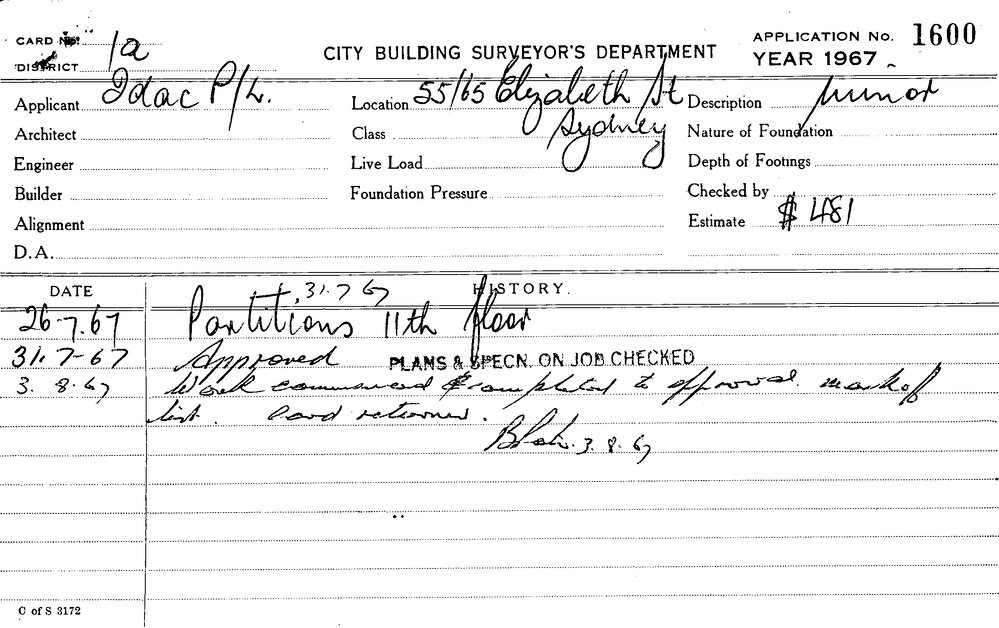 CARD No. 1a
DISTRICT
CITY BUILDING SURVEYOR'S DEPARTMENT
APPLICATION No. 1600
YEAR 1967
Applicant Idac P/L.
Location 55/65 Elizabeth St
Sydney
Description Minor
Architect
Class
Nature of Foundation
Engineer
Live Load
Depth of Footings
Builder
Foundation Pressure
Checked by
Alignment
Estimate $ 481
D.A.
DATE
HISTORY.
31.7 67
26-7.67 Partitions 11th floor
31.7-67 Approved PLANS & SPECN. ON JOB CHECKED
3. 8. 67 Work commenced & completed to approval. mark off
list. Card returned.
3. 8. 67
C of S 3172